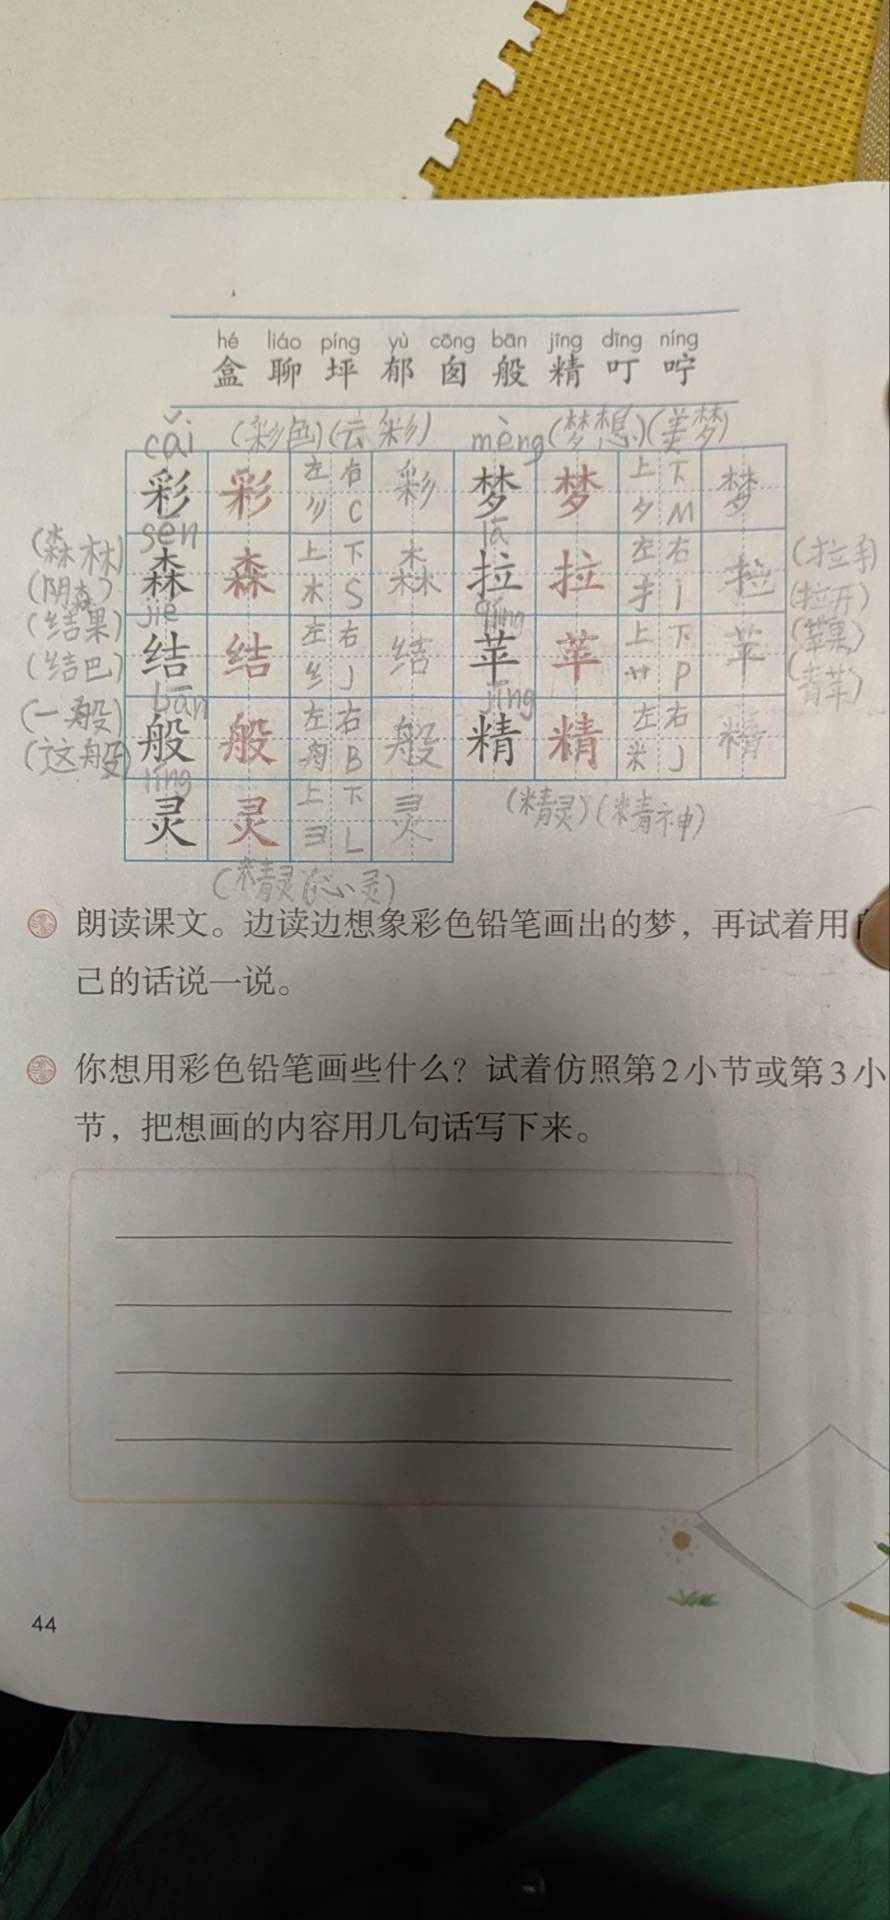 hé liáo píng yù cōng bān jīng dīng níng
盒 聊 坪 郁 囱 般 精 叮 咛
cǎi (彩色)(云彩) mèng(梦想)(美梦)
彩 彩 左 右 彩 梦 梦 上 下 梦
彡 C 夕 M
sēn lā
(森林) 森 森 上 下 森 拉 拉 左 右 拉 (拉手)
(阴森) 木 S 扌 (拉开)
jié
(结果) 结 结 左 右 结 苹 苹 上 下 苹 (苹果)
(结巴) 纟 J 艹 P (青苹)
bān jīng
(一般) 般 般 左 右 般 精 精 左 右 精
(这般) 舟 B 米 J
líng
灵 灵 上 下 灵 (精灵)(精神)
彐 L
(精灵)(心灵)
朗读课文。边读边想象彩色铅笔画出的梦，再试着用自
己的话说一说。
你想用彩色铅笔画些什么？试着仿照第2小节或第3小
节，把想画的内容用几句话写下来。
44